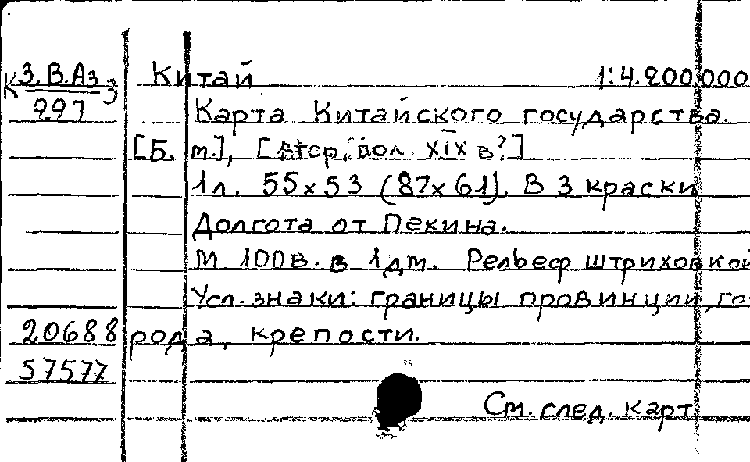 К З.В.Аз 3 Китай 1:4.200.000
297 Карта Китайского государства.
[Б. м.], [втор. пол. XIX в?]
1 л. 55×53 (87×61). В 3 краски
Долгота от Пекина.
М 100в. в 1 дм. Рельеф штриховкой
Усл. знаки: границы провинции, го-
20688 рода, крепости.
57577
См. след. карт